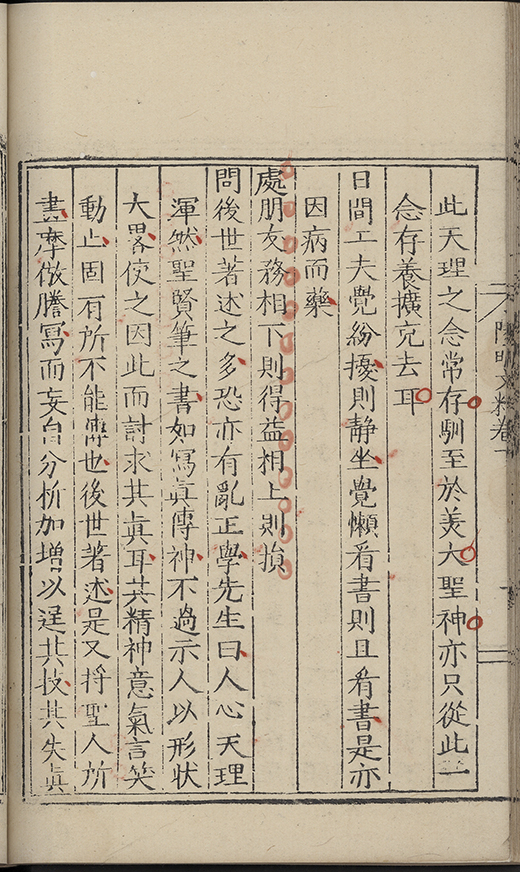 陽明文粹卷一
此天理之念常存馴至於美大聖神亦只從此一
念存養擴充去耳
日間工夫覺紛擾則静坐覺懶看書則且看書是亦
因病而藥
處朋友務相下則得益相上則損
問後世著述之多恐亦有亂正學先生曰人心天理
渾然聖賢筆之書如寫真傳神不過示人以形狀
大畧使之因此而討求其真耳其精神意氣言笑
動止固有所不能傳也後世著述是又將聖人所
畫摹倣謄寫而妄自分析加增以逞其技其失真